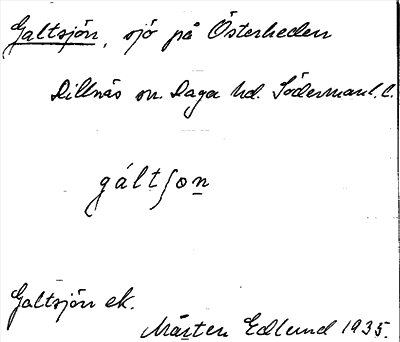 Galtsjön, sjö på Österheden
Dillnäs sn. Daga hd. Södermanl. l.
gáltʃon
Galtsjön ek.
Mårten Edlund 1935.